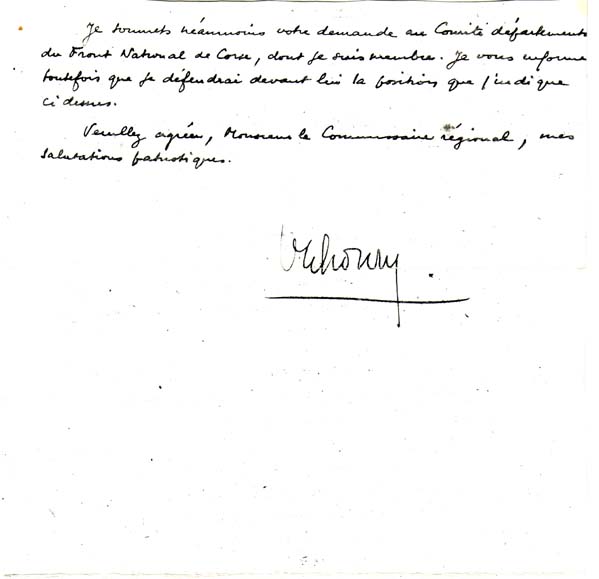 Je soumets néanmoins votre demande au Comité départemental
du Front National de Corse, dont je suis membre. Je vous informe
toutefois que je défendrai devant lui la position que j'indique
ci dessus.
Veuillez agréer, Monsieur le Commissaire régional, mes
salutations patriotiques.